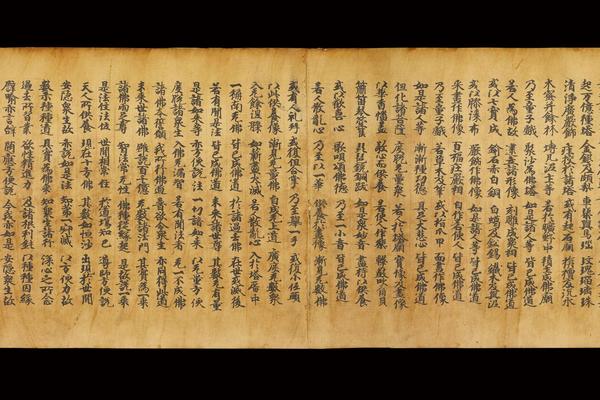 起万億種塔 金銀及頗梨 車𤦲與馬瑙 玫瑰瑠璃珠
清淨廣嚴飾 莊校於諸塔 或有起石廟 栴檀及沉水
木櫁并餘材 塼瓦泥土等 若於曠野中 積土成佛廟
乃至童子戲 聚沙為佛塔 如是諸人等 皆已成佛道
若人為佛故 建立諸形像 刻雕成衆相 皆已成佛道
或以七寶成 鍮石赤白銅 白鑞及鉛錫 鐵木及與泥
或以膠漆布 嚴飾作佛像 如是諸人等 皆已成佛道
采畫作佛像 百福莊嚴相 自作若使人 皆已成佛道
乃至童子戲 若草木及筆 或以指爪甲 而畫作佛像
如是諸人等 漸漸積功德 具足大悲心 皆已成佛道
但化諸菩薩 度脫无量衆 若人於塔廟 寶像及畫像
以華香幡蓋 敬心而供養 若使人作樂 擊鼓吹角貝
簫笛琴箜篌 琵琶鐃銅鈸 如是衆妙音 盡持以供養
或以歡喜心 歌唄頌佛德 乃至一小音 皆已成佛道
若人散亂心 乃至以一華 供養於畫像 漸見无數佛
或有人礼拜 或復但合掌 乃至舉一手 或復小低頭
以此供養像 漸見无量佛 自成无上道 廣度无數衆
入无餘涅槃 如薪盡火滅 若人散亂心 入於塔廟中
一稱南无佛 皆已成佛道 於諸過去佛 在世或滅後
若有聞是法 皆已成佛道 未來諸世尊 其數无有量
是諸如來等 亦方便說法 一切諸如來 以无量方便
度脫諸衆生 入佛无漏智 若有聞法者 无一不成佛
諸佛本誓願 我所行佛道 普欲令衆生 亦同得此道
未來世諸佛 雖說百千億 无數諸法門 其實為一乘
諸佛兩足尊 知法常无性 佛種從緣起 是故說一乘
是法住法位 世間相常住 於道場知已 導師方便說
天人所供養 現在十方佛 其數如恒沙 出現於世間
安隱衆生故 亦說如是法 知第一寂滅 以方便力故
雖示種種道 其實為佛乘 知衆生諸行 深心之所念
過去所習業 欲性精進力 及諸根利鈍 以種種因緣
譬喻亦言辭 隨應方便說 今我亦如是 安隱衆生故